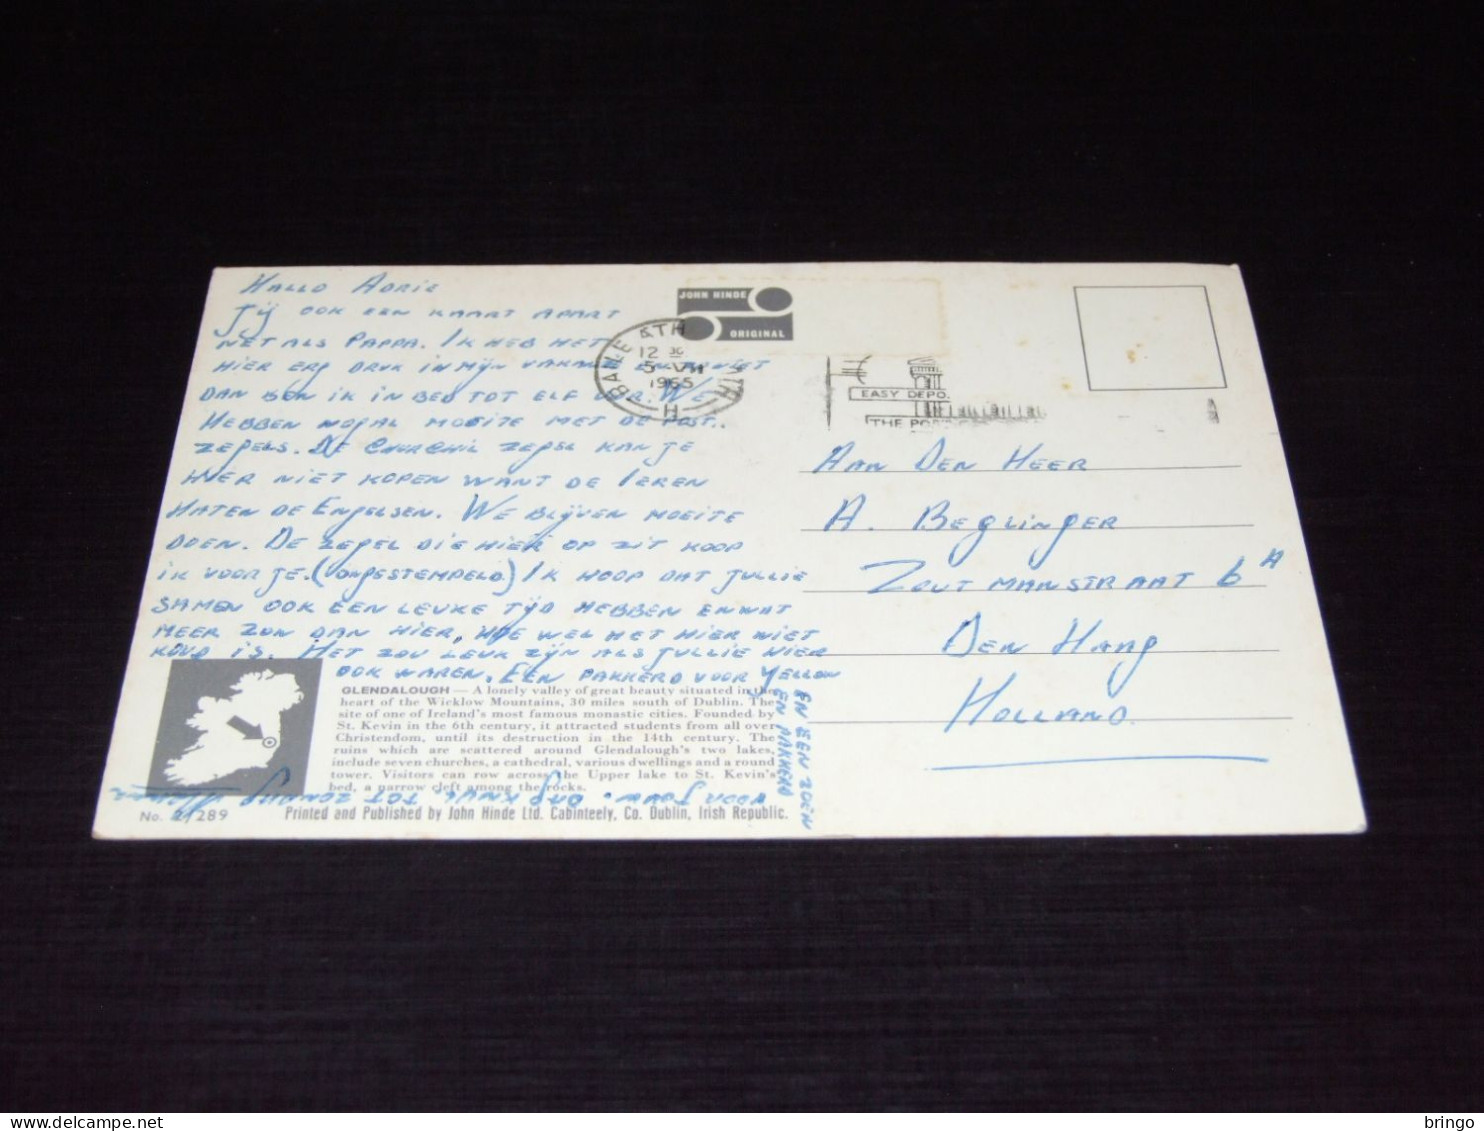 HALLO ADRIE
JIJ OOK EEN KAART APART
NET ALS PAPPA. IK HEB HET
HIER ERG DRUK IN MIJN
DAN BEN IK IN BED TOT ELF UUR. WE
HEBBEN NOGAL MOEITE MET DE POST.
ZEGELS. DE CHERCHIL ZEGEL KAN JE
HIER NIET KOPEN WANT DE IEREN
HATEN DE ENGELSEN. WE BLIJVEN MOEITE
DOEN. DE ZEGEL DIE HIER OP ZIT KOOP
IK VOOR JE. (ONGESTEMPELD) IK HOOP DAT JULLIE
SAMEN OOK EEN LEUKE TIJD HEBBEN EN WAT
MEER ZON DAN HIER, HOE WEL HET HIER NIET
KOUD IS. HET ZOU LEUK ZIJN ALS JULLIE HIER
OOK WAREN. EEN PAKKERD VOOR YELLOW
EN EEN ZOEN
EN PAKKERD
VOOR JOUW. DAG KNUL TOT ZONDAG
GLENDALOUGH — A lonely valley of great beauty situated in the
heart of the Wicklow Mountains, 30 miles south of Dublin. The
site of one of Ireland's most famous monastic cities. Founded by
St. Kevin in the 6th century, it attracted students from all over
Christendom, until its destruction in the 14th century. The
ruins which are scattered around Glendalough's two lakes,
include seven churches, a cathedral, various dwellings and a round
tower. Visitors can row across the Upper lake to St. Kevin's
bed, a narrow cleft among the rocks.
No. 2/289
Printed and Published by John Hinde Ltd. Cabinteely, Co. Dublin, Irish Republic.
JOHN HINDE
ORIGINAL
12 30
1965
EASY DEPO
THE POS
AAN DEN HEER
A. BEGLINGER
ZOUTMANSTRAAT 6 A
DEN HAAG
HOLLAND.
bringo